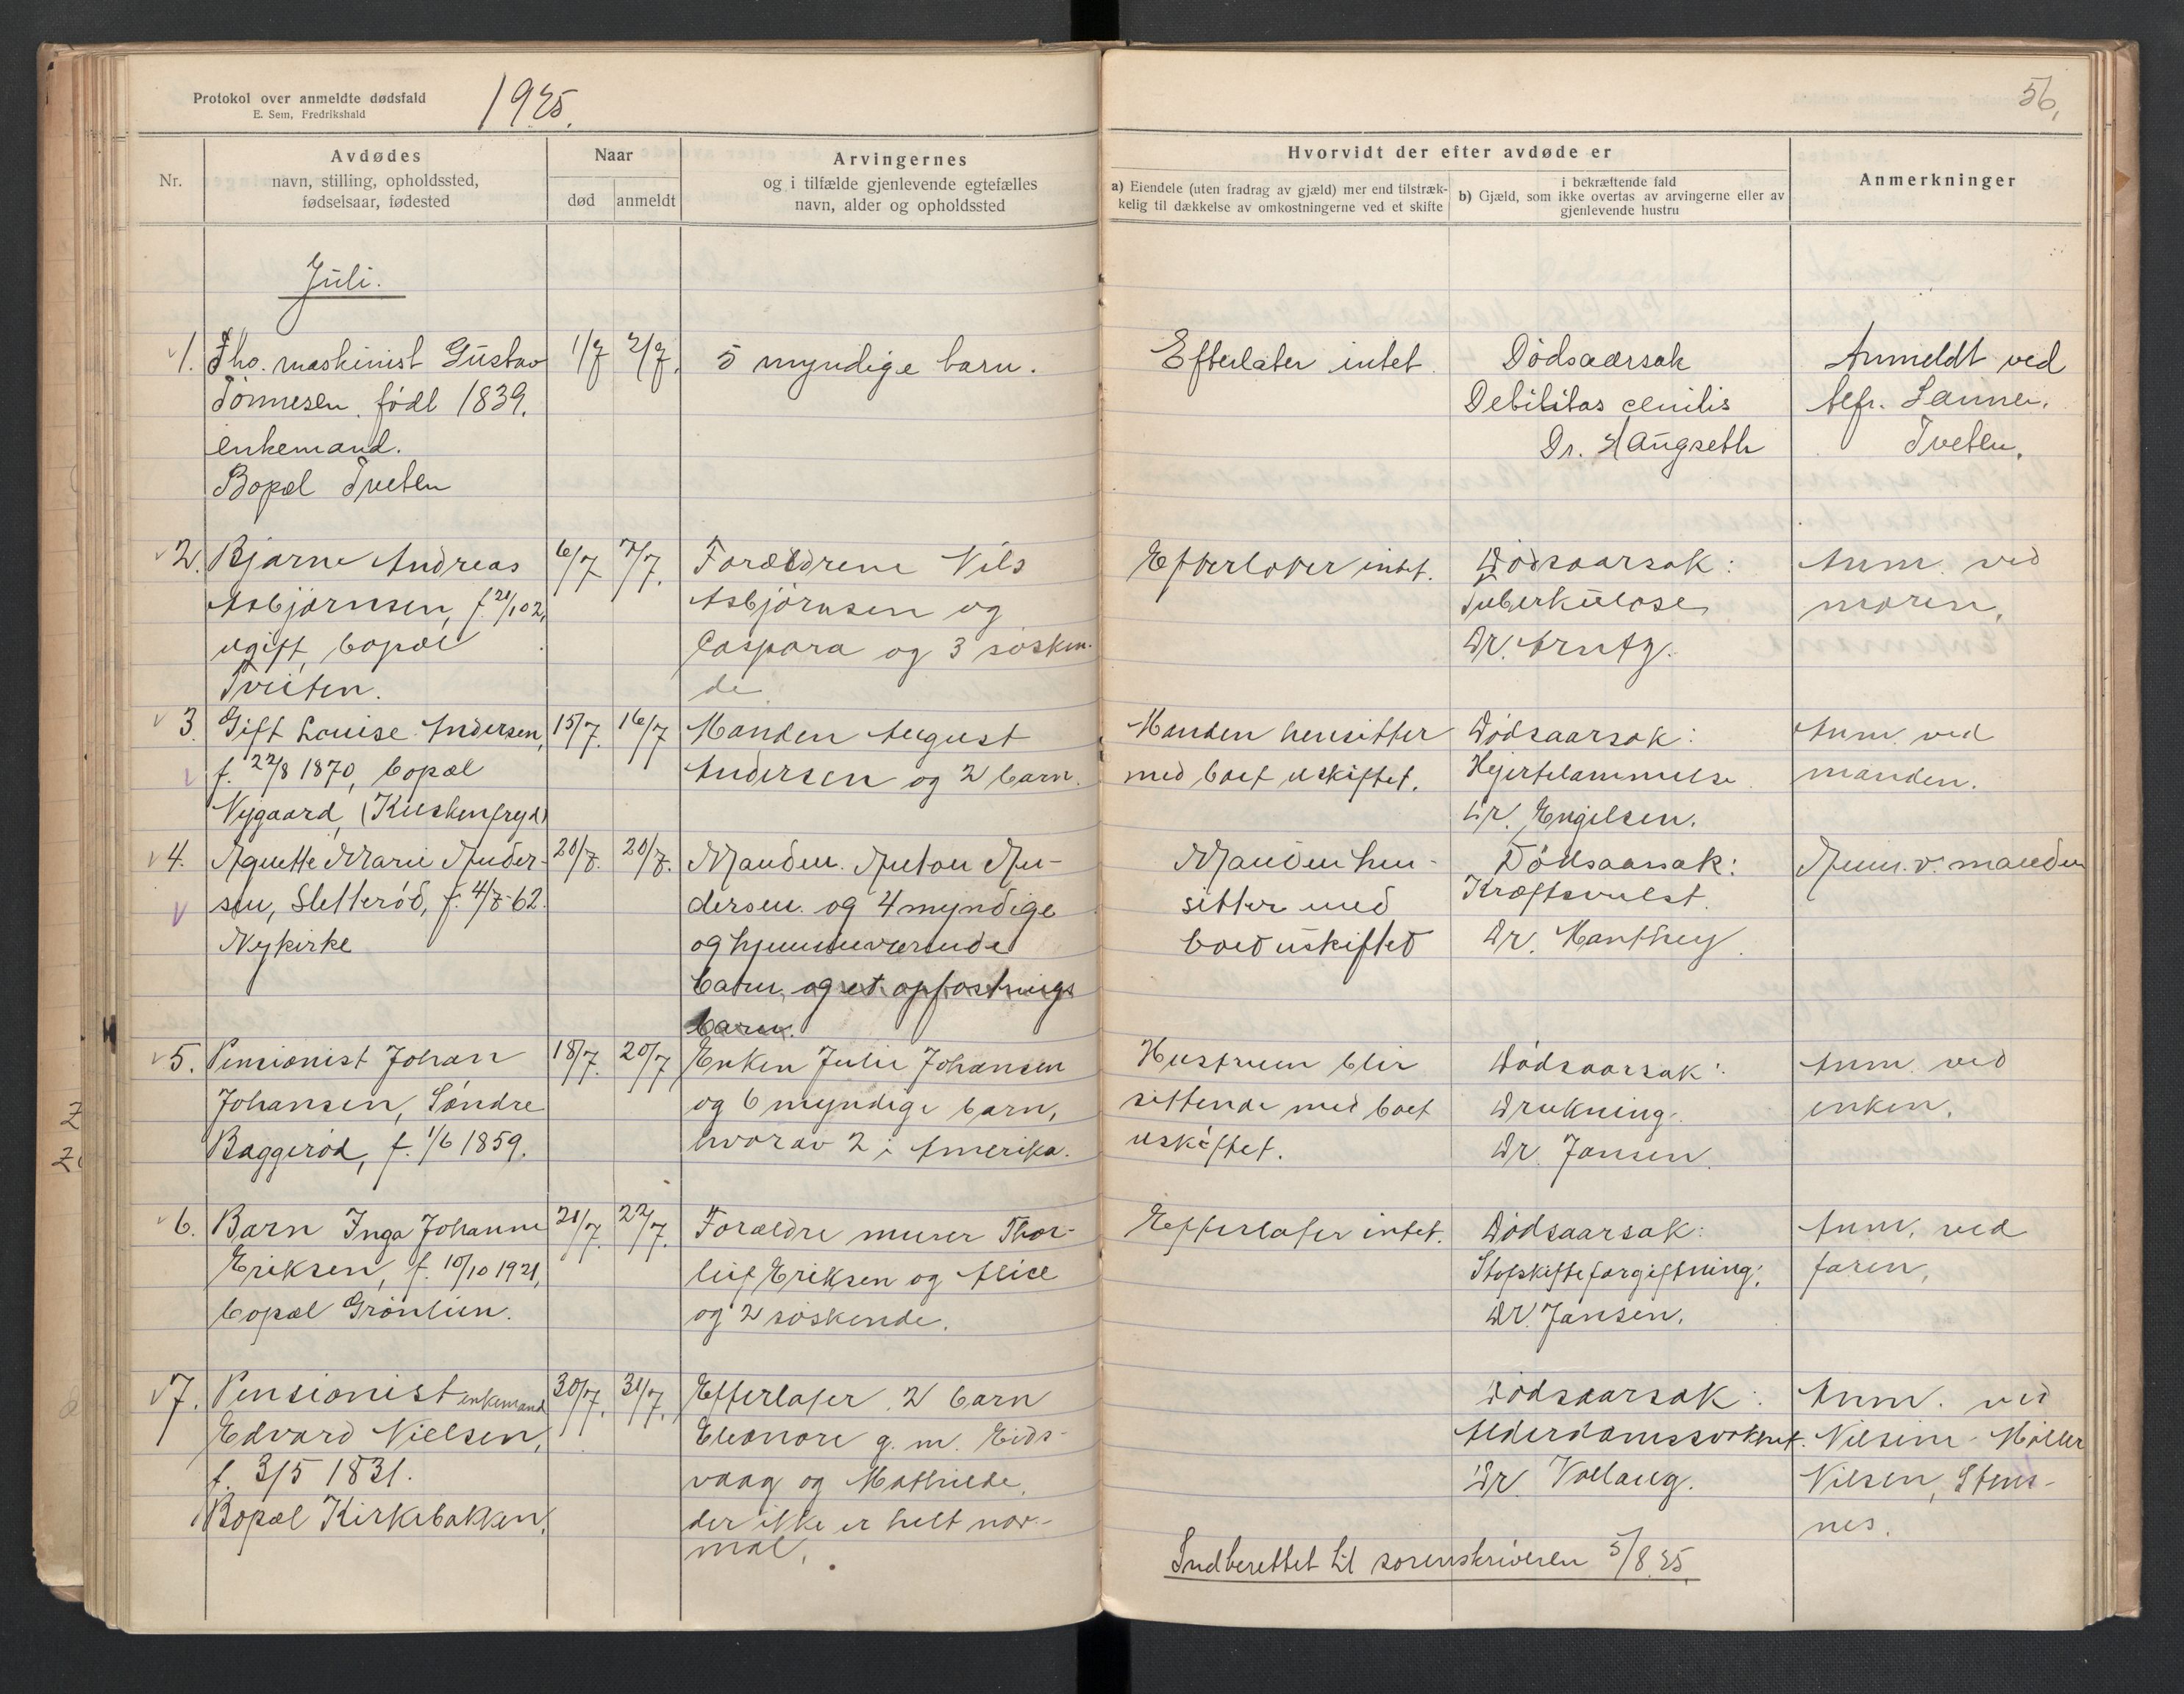 Protokol over anmeldte dødsfald
E. Sem, Fredrikshald
1925.
56,
Nr.
Avdødes
navn, stilling, opholdssted,
fødselsaar, fødested
Naar
død
anmeldt
Arvingernes
og i tilfælde gjenlevende egtefælles
navn, alder og opholdssted
Hvorvidt der efter avdøde er
a) Eiendele (uten fradrag av gjæld) mer end tilstræk-
kelig til dækkelse av omkostningerne ved et skifte
i bekræftende fald
b) Gjæld, som ikke overtas av arvingerne eller av
gjenlevende hustru
Anmerkninger
Juli.
1. Fho. maskinist Gustav
Tönnesen, född 1839.
enkemand.
Bopæl Tveten
1/7 2/7.
5 myndige barn.
Efterlater intet.
Dödsaarsak
Debilitas cenilis
Dr. Haugseth
Anmeldt ved
Tveten.
2. Bjarne Andreas
Asbjørnsen, f. 21/1 02,
ugift, bopæl
Tveiten.
6/7 7/7.
Forældrene Nils
Asbjørnsen og
Caspara og 3 søsken-
de
Efterlater intet.
Dødsaarsak:
Tuberkulose
Dr. Arntz.
Anm. ved
moren.
3. Gift Louise Andersen,
f. 22/8 1870, bopæl
Nygaard, (Kuskenfryd)
15/7. 16/7
Manden August
Andersen og 2 barn.
Manden hensitter
med boet uskiftet.
Dødsaarsak:
Hjertelammelse
Dr. Engelsen.
Anm. ved
manden.
4. Agnette Marie Ander-
sen, Sletterød, f. 4/7-62.
Nykirke
20/7. 20/7.
Manden Anton An-
dersen og 4 myndige
og hjemmeværende
barn, og et opfostrings
barn.
Manden hen-
sitter med
boet uskiftet
Dødsaarsak:
Kræftsvulst.
Dr. Manthey.
Anm. v. manden
5. Pensionist Johan
Johansen, Søndre
Baggerød, f. 1/6 1859.
18/7. 20/7
Enken Julie Johansen
og 6 myndige barn,
hvorav 2 i Amerika.
Hustruen blir
sittende med boet
uskiftet.
Dødsaarsak:
Drukning.
Dr. Jansen.
Anm. ved
enken.
6. Barn Inga Johanne
Eriksen, f. 10/10 1921,
bopæl Grønlien.
21/7. 22/7.
Forældre murer Thor-
leif Eriksen og Alice
og 2 søskende.
Efterlater intet.
Dødsaarsak:
Stofskifteforgiftning:
Dr. Jansen.
Anm. ved
faren,
7. Pensionist enkemand
Edvard Nielsen,
f. 3/5 1831.
Bopæl Kirkebakken.
30/7. 31/7.
Efterlater 2 barn
Eleonore g. m. Eids-
vaag og Mathilde,
der ikke er helt nor-
mal.
Dødsaarsak:
Alderdomssvakhet.
Dr. Vollaug.
Anm. ved
Nilsine Møller
Nilsen, Stens-
nes.
Indberettet til sorenskriveren 5/8.25.